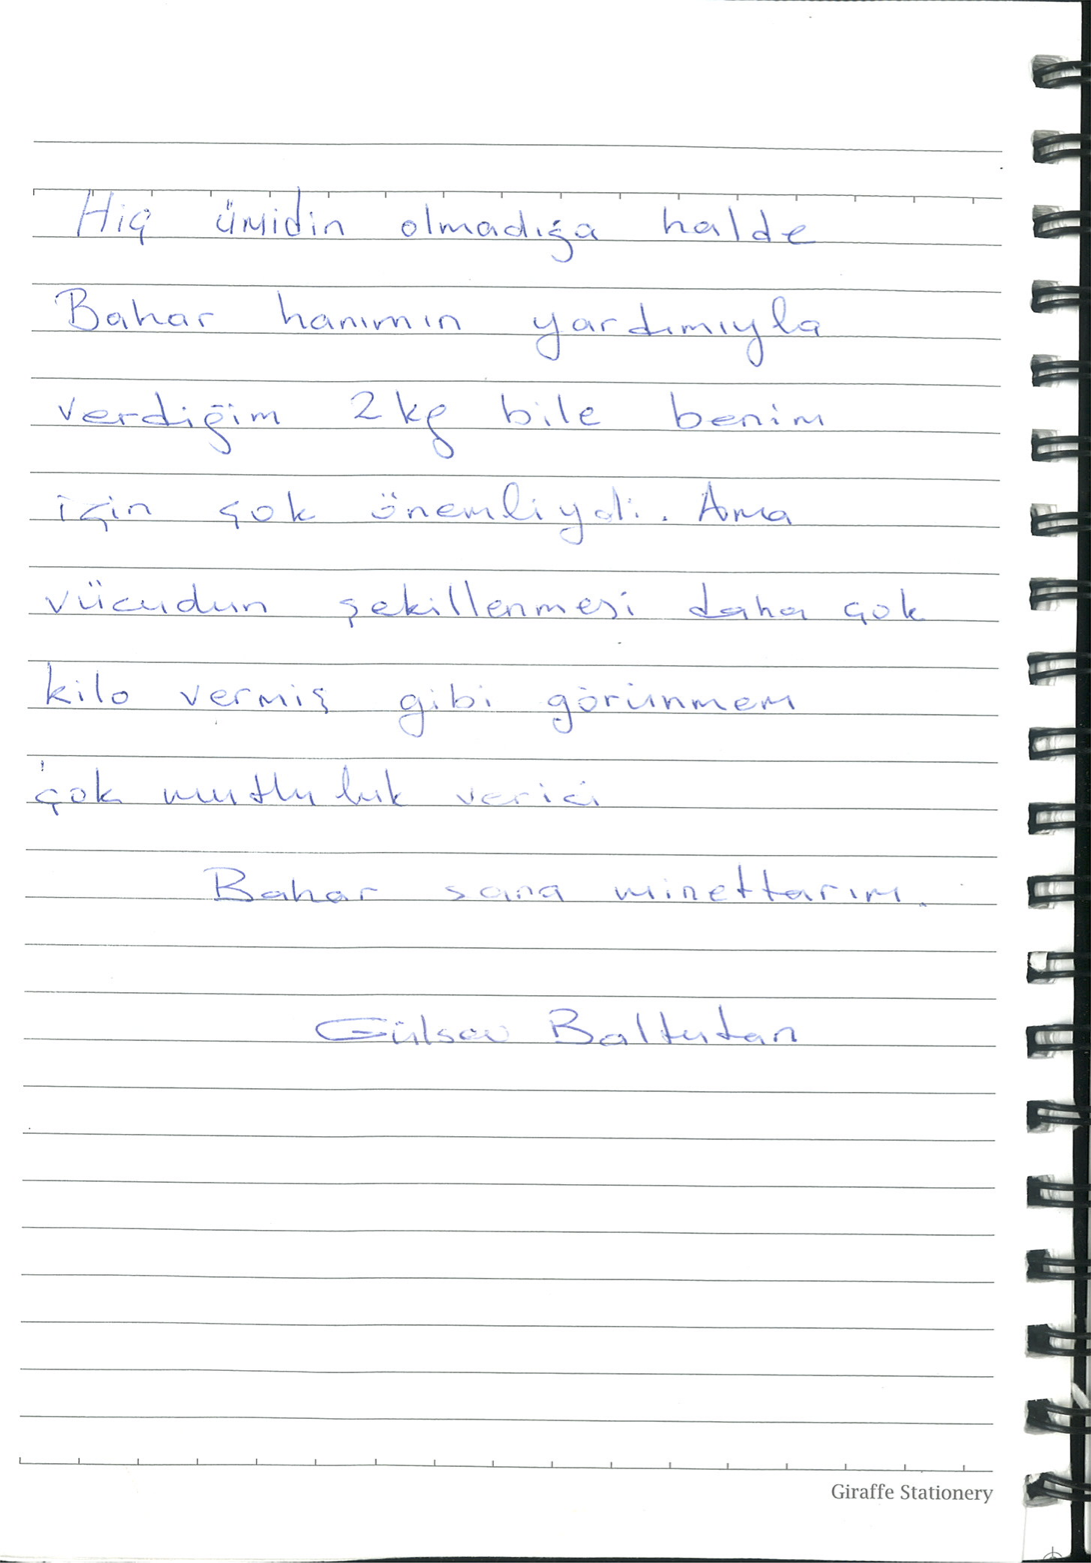 Hiç ümidin olmadığa halde
Bahar hanımın yardımıyla
verdiğim 2 kg bile benim
için çok önemliydi. Ama
vücudun şekillenmesi daha çok
kilo vermiş gibi görünmem
çok mutluluk verici
Bahar sana minettarım.
Baltutan
Giraffe Stationery